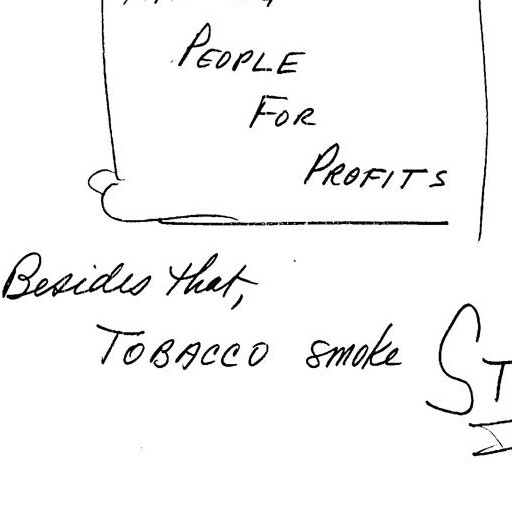 PEOPLE
FOR
PROFITS
Besides that,
TOBACCO smoke